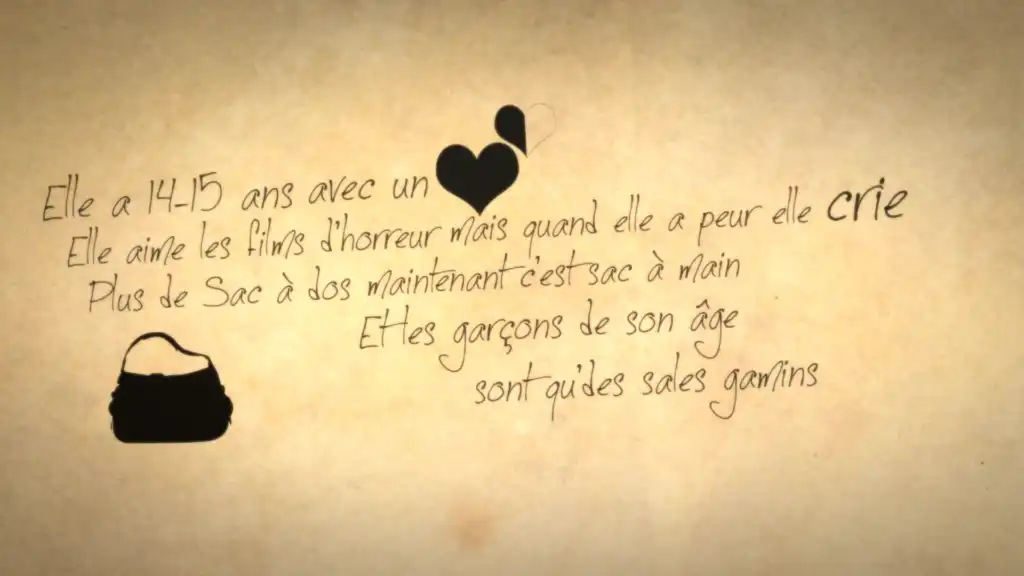 Elle a 14-15 ans avec un
Elle aime les films d'horreur mais quand elle a peur elle crie
Plus de Sac à dos maintenant c'est sac à main
Et les garçons de son âge
sont qu'des sales gamins